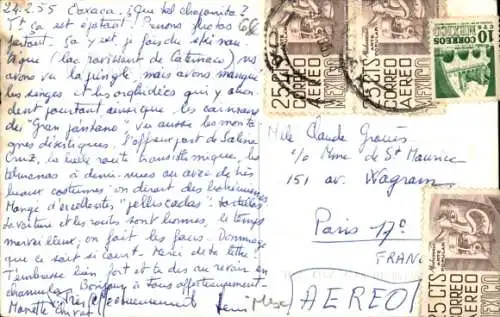 24-2-55 Oaxaca. ¿Que tal chaparrita?
Ça est épatant! Prenons photos
partout. Ça y est, je fais du ski nau
tique (lac ravissant de Catemaco), nous
avons vu la jungle, mais avons manqué
les singes et les orchidées qui y abon
dent pourtant ainsi que les caïmans
des "Gran pantano". Vu aussi les monta
gnes désertiques. L'affreux port de Salina
Cruz, la belle route transisthmique, les
tehuanas à demi-nues ou avec de très
beaux costumes: on dirait des bohémiennes
Mangé d'excellentes
La voiture et les routes sont bonnes, le temps
merveilleux; on fait les fous. Dommage
que ce soit si court. Merci de ta lettre.
T'embrasse bien fort et te dis au revoir en
chamula. Bonjour à tous affectueusement
Très affectueusement
Mexique
25 CTS
CORREO
AEREO
MEXICO
25 CTS
CORREO
AEREO
MEXICO
10
CORREOS
MEXICO
Mlle Claude
c/o Mme de St Maurice
151 av. Wagram
Paris 17e
FRANCE
AEREO
25 CTS
CORREO
AEREO
MEXICO